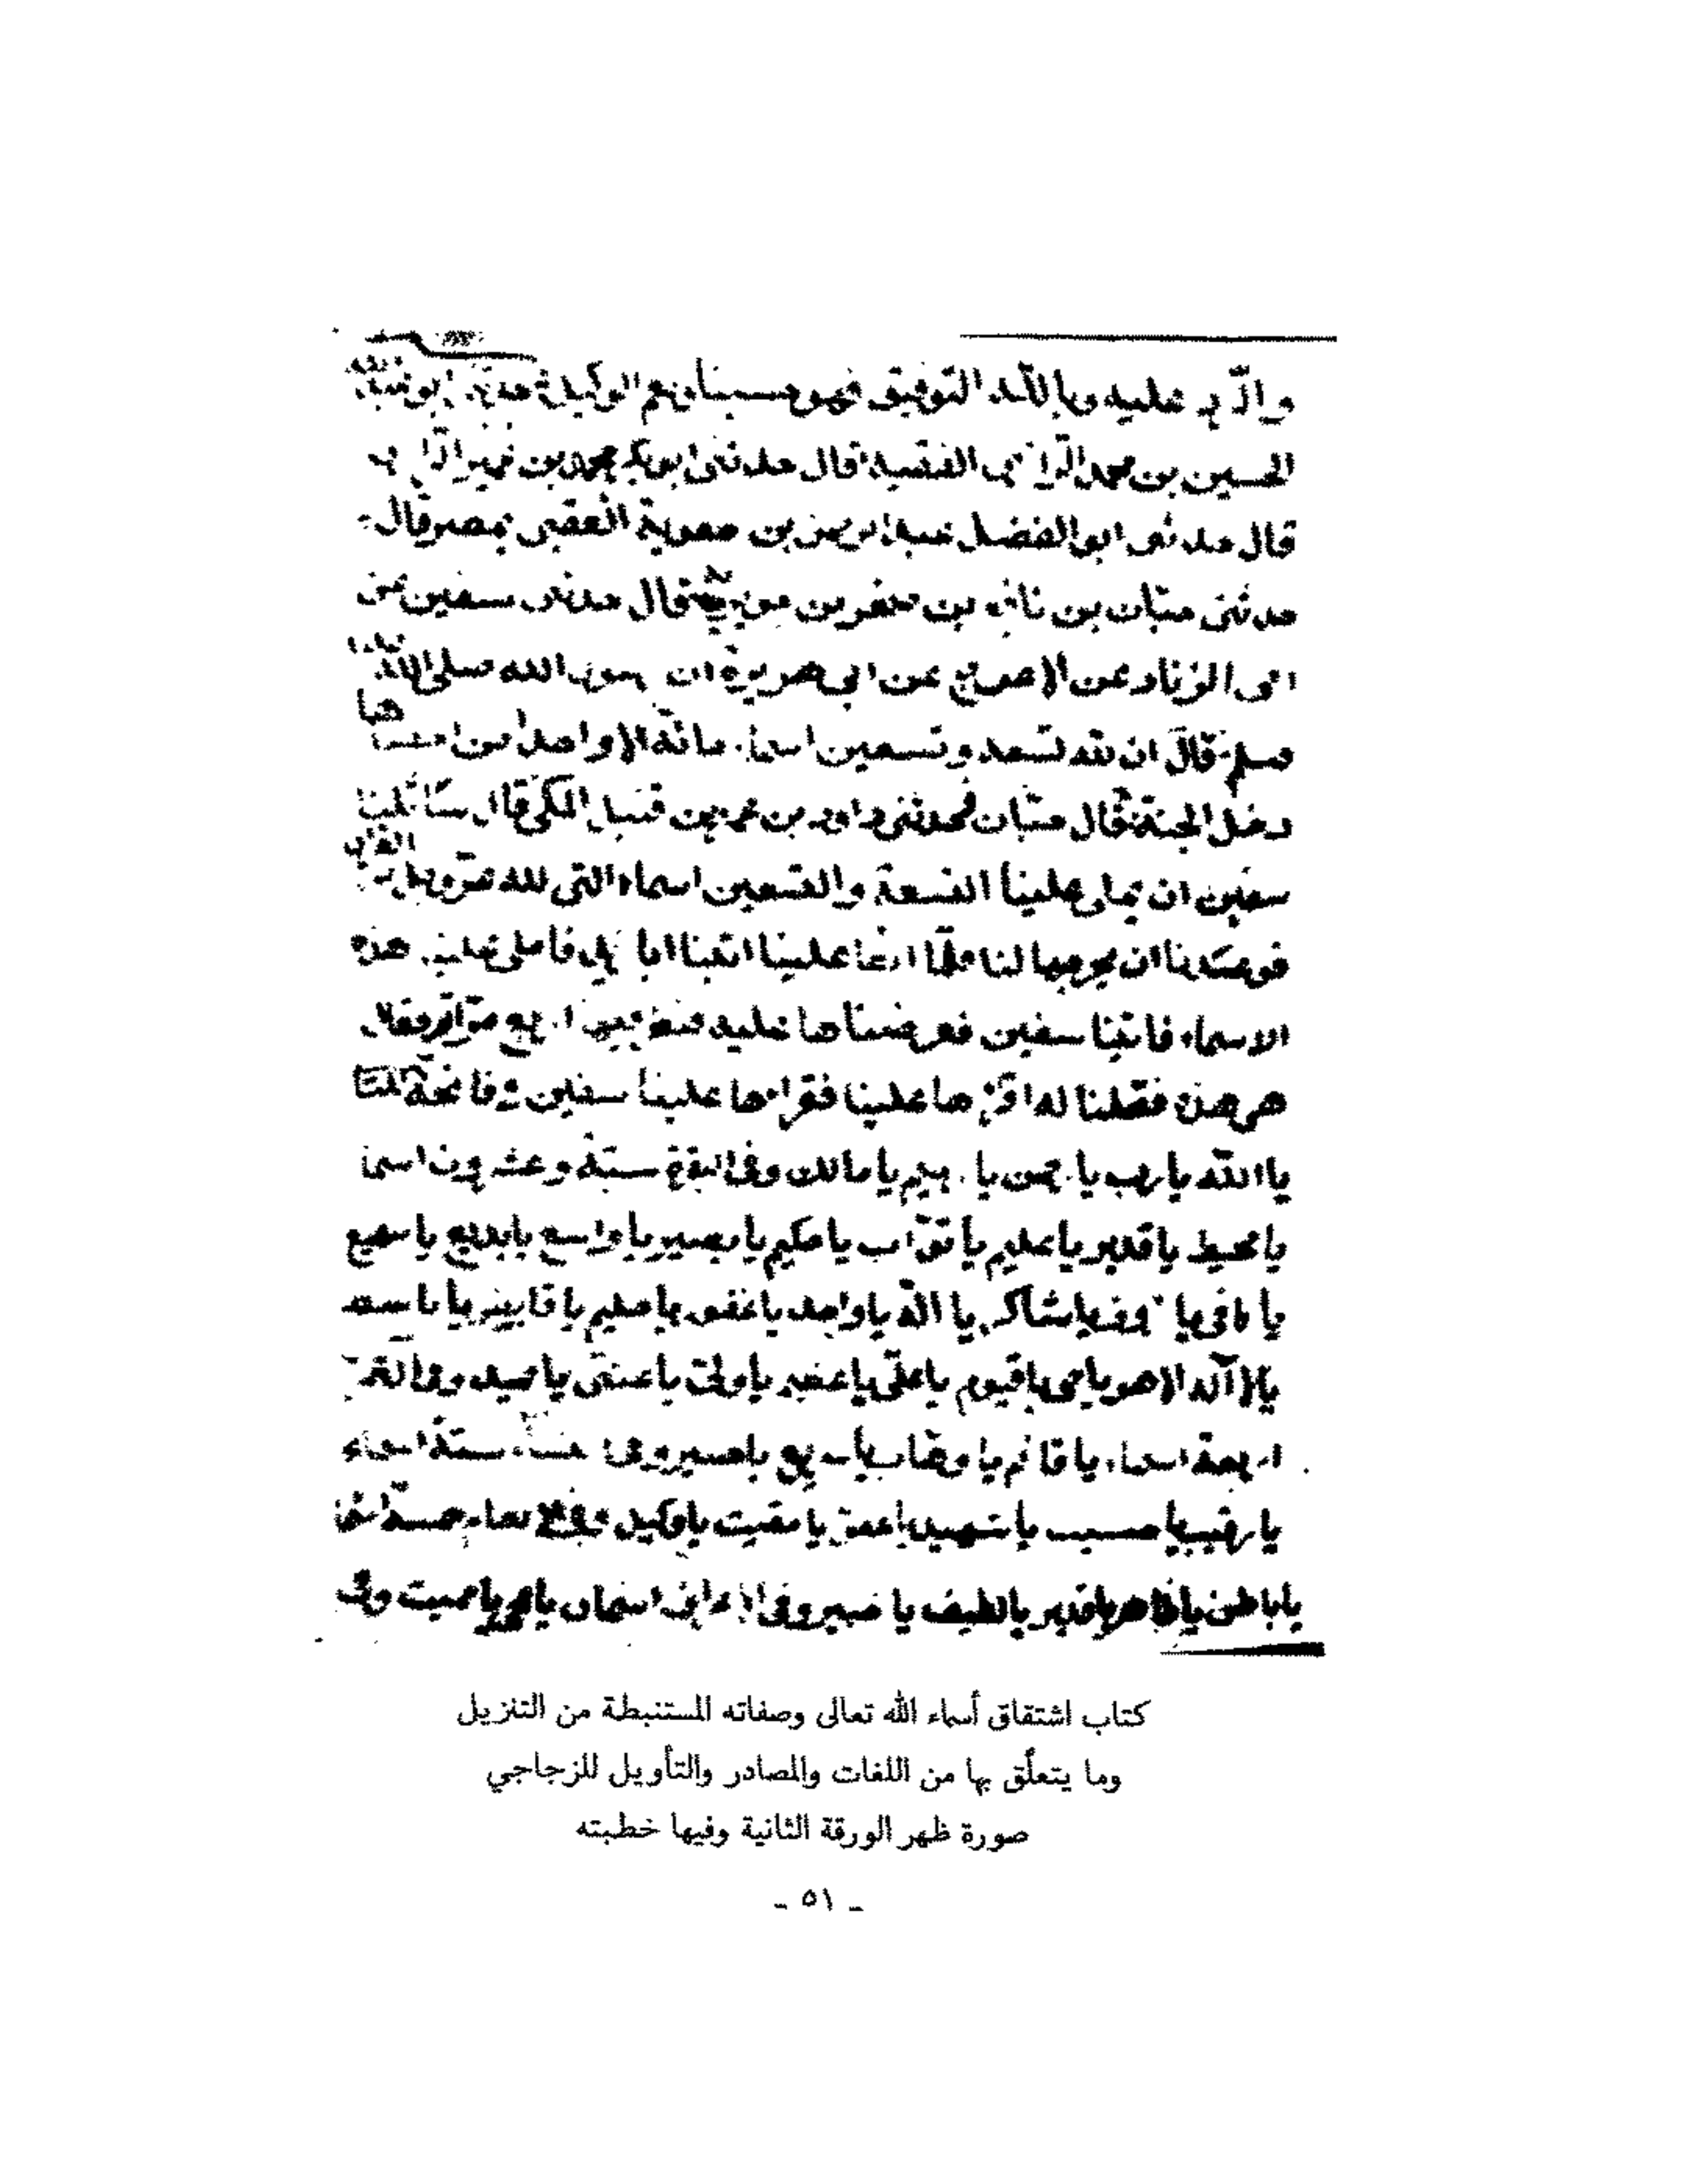 عليه وبالله التوفيق فهو حسبنا ونعم الوكيل
الحسين بن محمد الفقيه قال حدثني ابو بكر محمد بن
قال حدثني ابو الفضل بن معوية العقبي بمصر قال
حدثني حبان بن نافع بن صخر بن قال حدثني سفين عن
ابي الزناد عن الاعرج عن ابي هريرة ان رسول الله صلى الله
وسلم قال ان لله تسعة وتسعين اسما مائة الا واحدا من
دخل الجنة قال حبان فحدثني داود بن عمرو بن قنبل المكي قال سألنا
سفين ان يملي علينا التسعة والتسعين اسماء التي لله
فوعدنا ان يخرجها لنا فلما علينا اتينا ابا زيد فاملى علينا هذه
الاسماء فاتينا سفين فعرضناها عليه فنظر فيها اربع مرات فقال
هي هذه فقلنا له اقرأها علينا فقراها علينا سفين في فاتحة الكتاب
يا الله يا رب يا رحمن يا رحيم يا مالك وفي البقرة ستة وعشرون اسما
يا محيط يا قدير يا عليم يا تواب يا حكيم يا بصير يا واسع يا بديع يا سميع
يا كافي يا رؤوف يا شاكر يا الله يا واحد يا غفور يا حليم يا قابض يا باسط
يا لا آله الا هو يا حي يا قيوم يا علي يا عظيم يا ولي يا غني يا حميد وفي
اربعة اسماء يا قائم يا وهاب يا سريع يا خبير وفي النساء ستة اسماء
يا رقيب يا حسيب يا شهيد يا عفو يا مقيت يا وكيل
يا باطن يا ظاهر يا قدير يا لطيف يا خبير وفي الاعراف اسمان يا محيي يا مميت وفي
كتاب اشتقاق أسماء الله تعالى وصفاته المستنبطة من التنزيل
وما يتعلّق بها من اللغات والمصادر والتأويل للزجاجي
صورة ظهر الورقة الثانية وفيها خطبته
ـ ٥١ ـ